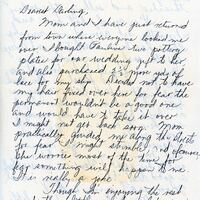 Dearest Darling,
Mom and I have just returned
from town where everyone looked me
over. I bought Pauline two pottery
plates for our wedding gift to her
and also purchased 3½ more yds of
lace for my Decided not to have
my hair fixed over fine for fear the
permanent wouldn't be a good one
and would have to take it over
I might not get one soon. Mom
practically guided me along the streets
for fear I might stumble
She worries most of the time for
something will happen to me
The really a joke.
Though I'm enjoying the rest